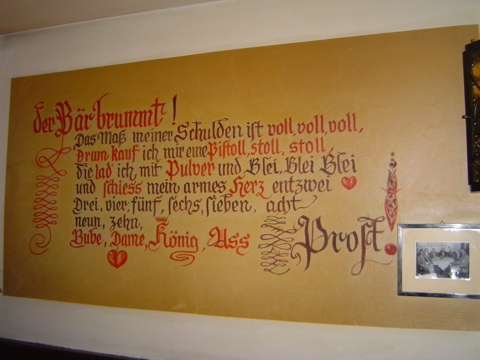 der Bär brummt!
Das Maß meiner Schulden ist voll, voll, voll,
Drum kauf ich mir eine Pistoll, stoll, stoll,
die lad ich mit Pulver und Blei, Blei Blei
und schiess mein armes Herz entzwei
Drei, vier, fünf, sechs, sieben, acht
neun, zehn,
Bube, Dame, König, Ass
Prost!